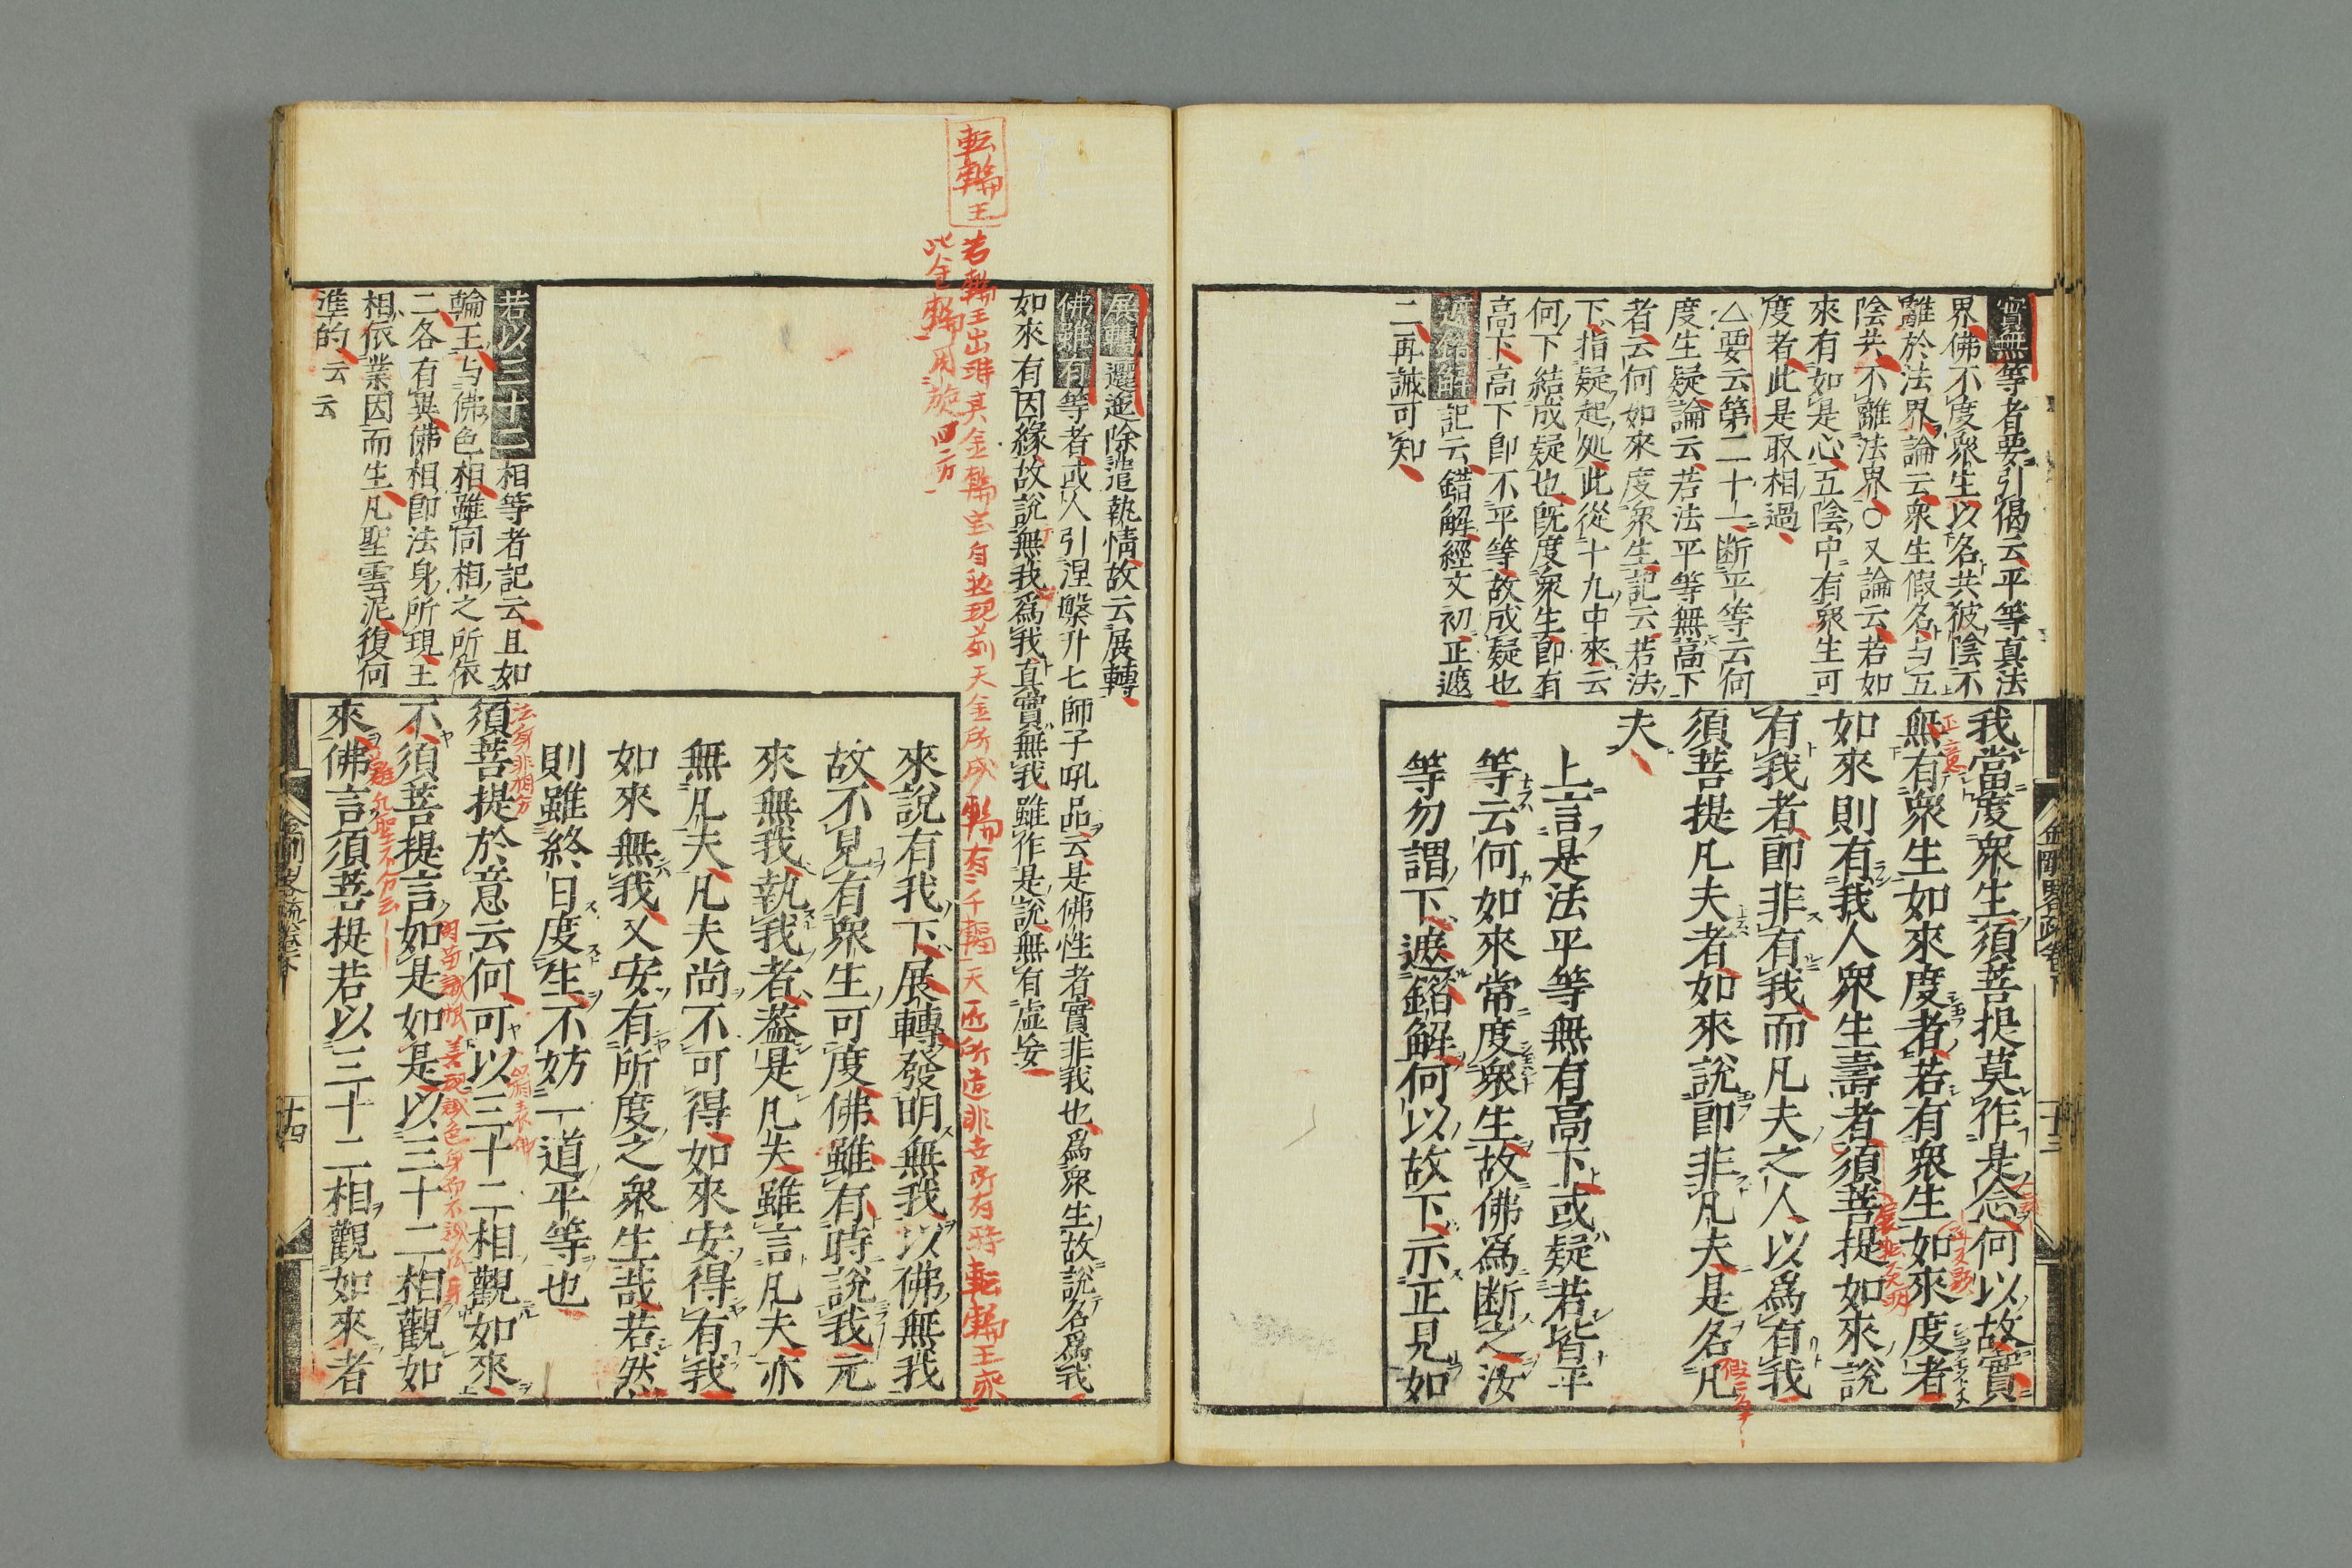 實無等者要引偈云平等真法
界佛不度衆生以名共彼陰不
離於法界論云衆生假名与五
陰共不離法界○又論云若如
來有如是心五陰中有衆生可
度者此是取相過
△要云第二十一断平等云何
度生疑論云若法平等無高下
者云何如來度衆生記云若法
下指疑起処此從十九中來云
何下結成疑也既度衆生即有
高下高下即不平等故成疑也
遮錯解記云錯解經文初正遮
二再誡可知
我當度衆生須菩提莫作是念何以故實
無有衆生如來度者若有衆生如來度者
如來則有我人衆生壽者須菩提如來說
有我者即非有我而凡夫之人以爲有我
須菩提凡夫者如來說即非凡夫是名凡
夫
上言是法平等無有高下或疑若皆平
等云何如來常度衆生故佛爲断之汝
等勿謂下遮錯解何以故下示正見如
金剛畧疏卷下
十三
展轉還迤除遣執情故云展轉
佛雖有等者或人引涅槃廾七師子吼品云是佛性者實非我也爲衆生故說名爲我
如來有因緣故說無我爲我真實無我雖作是說無有虛妄
転輪王
若輪王出世其金輪宝自然現前天金所成輪有千輻天匠所造非世所有
此金輪用旋四方
來說有我下展轉發明無我以佛無我
故不見有衆生可度佛雖有時說我元
來無我執我者葢是凡夫雖言凡夫亦
無凡夫凡夫尚不可得如來安得有我
如來無我又安有所度之衆生哉若然
則雖終日度生不妨一道平等也
若以三十二相等者記云且如
輪王与佛色相雖同相之所依
二各有異佛相即法身所現王
相依業因而生凡聖雲泥復何
準的云云
須菩提於意云何可以三十二相觀如來
不須菩提言如是如是以三十二相觀如
來佛言須菩提若以三十二相觀如來者
十四